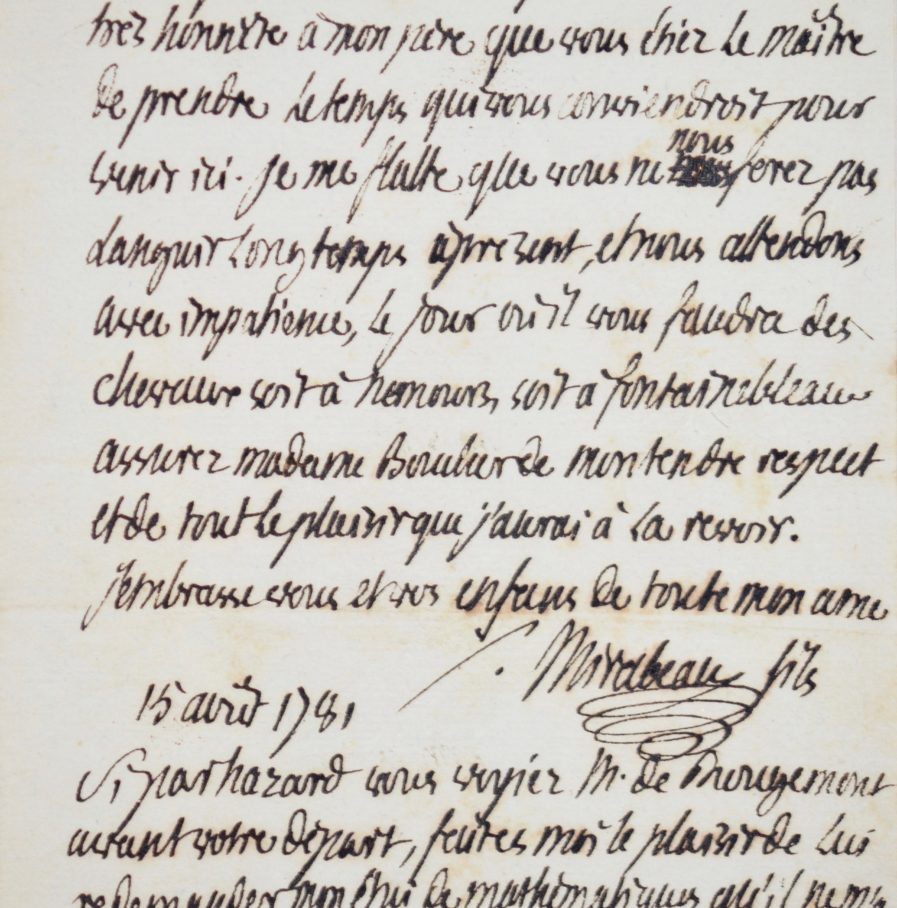 très honnête à mon père que vous étiez le maître
de prendre le temps qui vous conviendroit pour
venir ici. je me flatte que vous ne nous ferez pas
languir longtemps àprezent, et nous attendons
avec impatience, le jour où il vous faudra des
chevaux soit à nemours soit à fontainebleau
assurez madame Boucher de mon tendre respect
et de tout le plaisir que j'aurai à la revoir.
j'embrasse vous et vos enfans de toute mon ame
Mirabeau fils
15 avril 1781
Si par hazard vous voyiez M. de Rougemont
avant votre départ, faites moi le plaisir de lui
redemander mon étui de mathématiques qu'il ne m'a